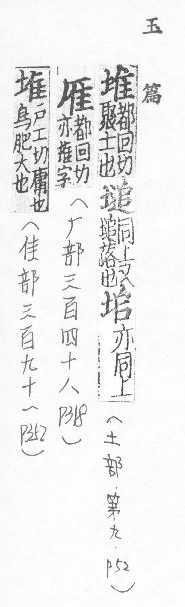 玉篇
堆 都回切聚土也 塠 同上又塠落也 垖 亦同上 (土部.第九.P52)
都回切亦堆字 (厂部三百四十八 P318)
戶工切 鳥肥大也 (隹部三百九十一 P352)